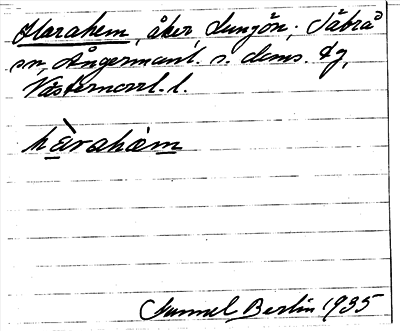 Harahem, åker, Lungön, Säbrå
sn, Ångermanl. s. doms. tg,
Västernorrl. l.
hàrahèm
Gunnel Berlin 1935